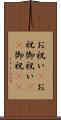 お祝い お
祝御祝い
御祝